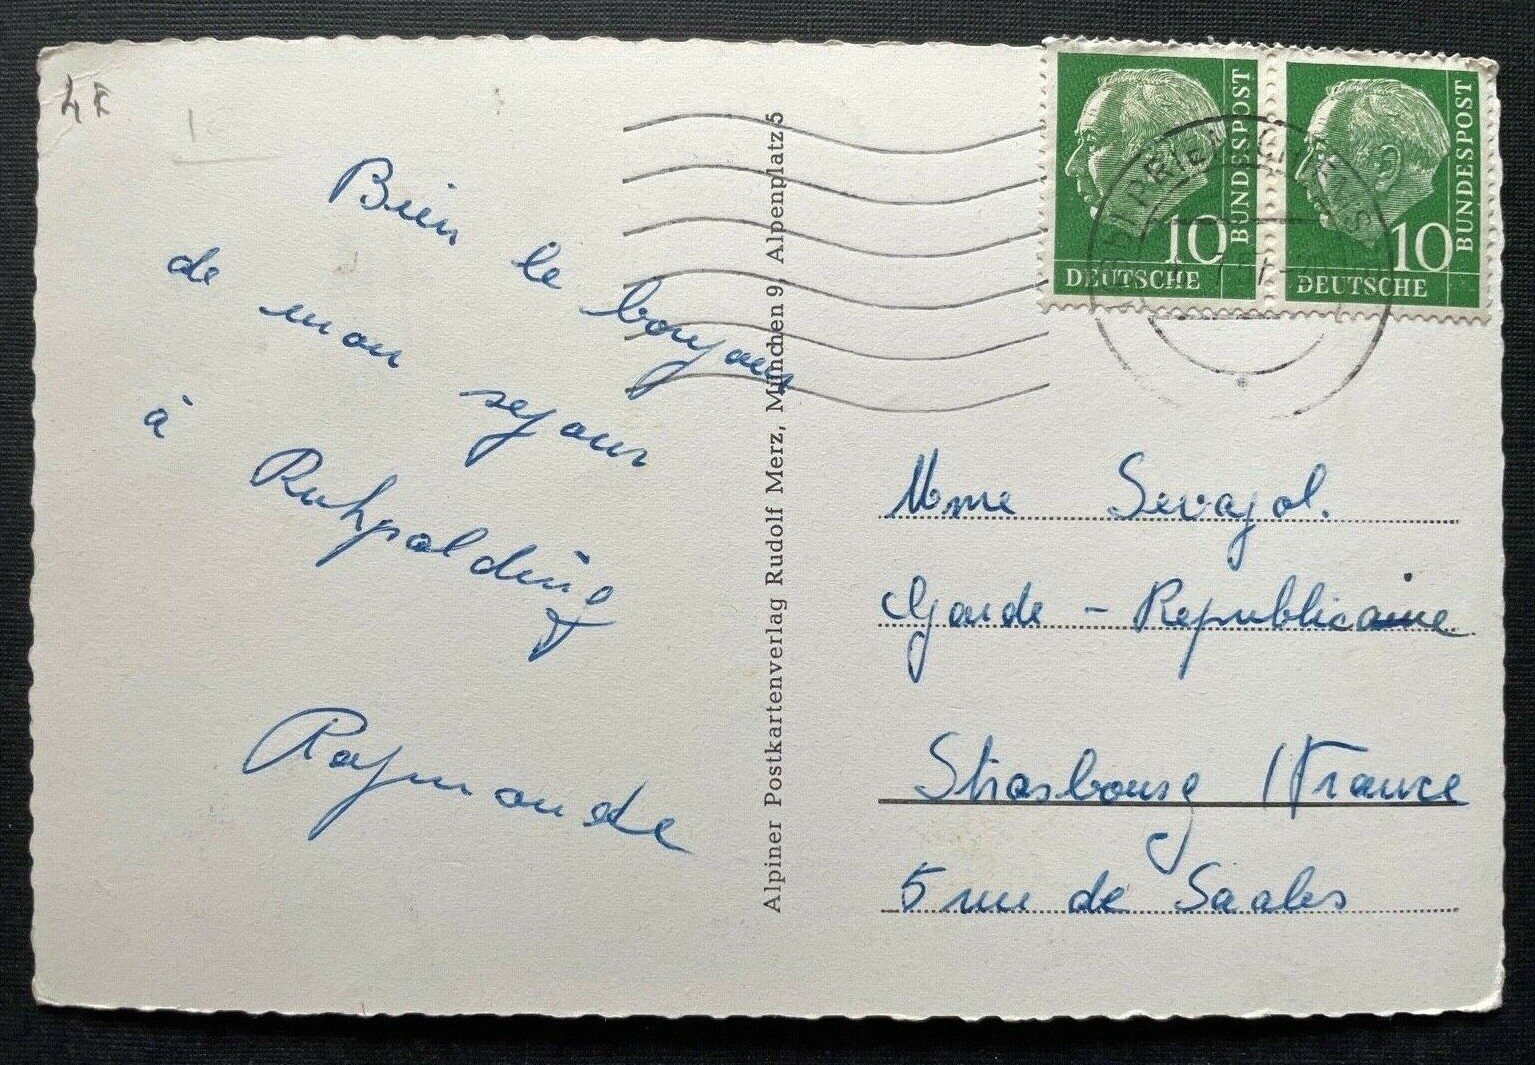 Bien le bonjour
de mon sejour
à Ruhpolding
Raymonde
Alpiner Postkartenverlag Rudolf Merz, München 9, Alpenplatz 5
10
DEUTSCHE
BUNDESPOST
10
DEUTSCHE
BUNDESPOST
PRIEN CHIEMS
Mme Sevajol.
Garde - Republicaine
Strasbourg (France
5 rue de Saales